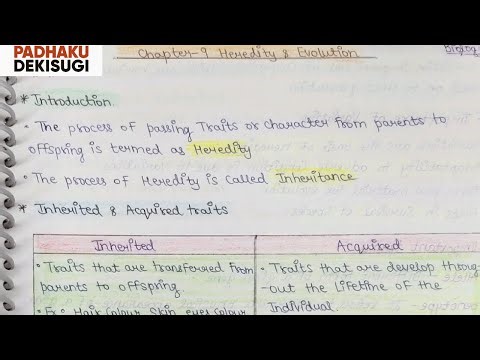 PADHAKU
DEKISUGI
Chapter-9 Heredity & Evolution
* Introduction
• The process of passing Traits or character from parents to
offspring is termed as Heredity
• The process of Heredity is called Inheritance
* Inherited & Acquired traits
Inherited
Acquired
• Traits that are transferred from
parents to offspring.
• Traits that are develop through-
out the lifetime of the
Individual.
• Ex: Hair Colour, Skin, eyes colour